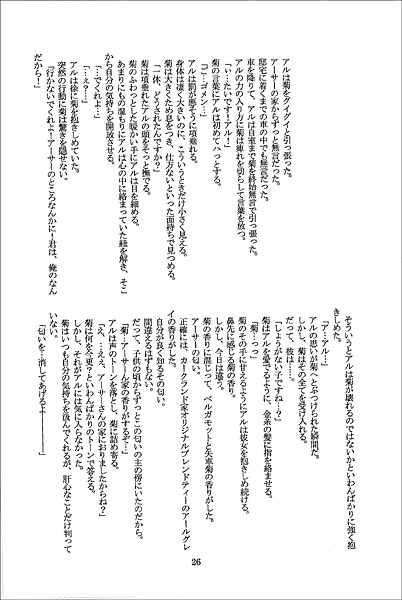 アルは菊をグイグイと引っ張った。
アーサーの家からずっと無言だった。
邸宅に着くまでの車の中でも無言だった。
車を降りて、アルは自室まで菊を終始無言で引っ張った。
アルの力の入り方に菊は痺れを切らして言葉を放つ。
「い…たいです！アル！」
菊の言葉にアルは初めてハっとする。
「ご…ゴメン…」
アルは罰が悪そうに項垂れる。
身体は凄く大きいのに、こういうときだけ小さく見える。
菊は大きくため息をつき、仕方ないといった面持ちで見つめる。
「一体、どうされたんですか？」
菊は項垂れたアルの頭をそっと撫でる。
菊のふわっとした暖かい手にアルは目を細める。
あまりにもの温もりにアルは心の中に絡まっていた紐を解き、そこ
から自分の気持ちを開放させる。
「…でくれよ…」
「…え？…」
アルは徐に菊を抱きしめていた。
突然の行動に菊は驚きを隠せない。
「行かないでくれよ！アーサーのところなんかに！君は、俺のなん
だから！」
そういうとアルは菊が壊れるのではないかといわんばかりに強く抱
きしめた。
「ア…アル…」
アルの思いが菊へとぶつけられた瞬間だ。
しかし、菊はその全てを受け入れる。
だって、彼は……。
「しょうがない子ですね…？」
菊はアルを愛でるように、金糸の髪に指を絡ませる。
「菊…っ」
菊のその手に甘えるようにアルは彼女を抱きしめ続ける。
鼻先に感じる菊の香り。
しかし、今日は違う。
菊の香りに混じって、ベルガモットと矢車菊の香りがした。
アーサーの匂い。
正確には、カークランド家オリジナルブレンドティーのアールグレ
イの香りがした。
自分が良く知るその匂い。
間違えるはずもない。
だって、子供の頃からずっとこの匂いの主の傍にいたのだから。
「菊…アーサーん家の香りがするぞ…」
アルは声のトーンを落とし、菊に詰め寄る。
「え、…ええ、アーサーさんの家におりましたからね？」
菊は何を今更？といわんばかりのトーンで答える。
しかし、それがアルには気に入らなかった。
菊はいつも自分の気持ちを汲んでくれるが、肝心なことだけ判って
いない。
「匂いを…消してあげるよ――――」
26